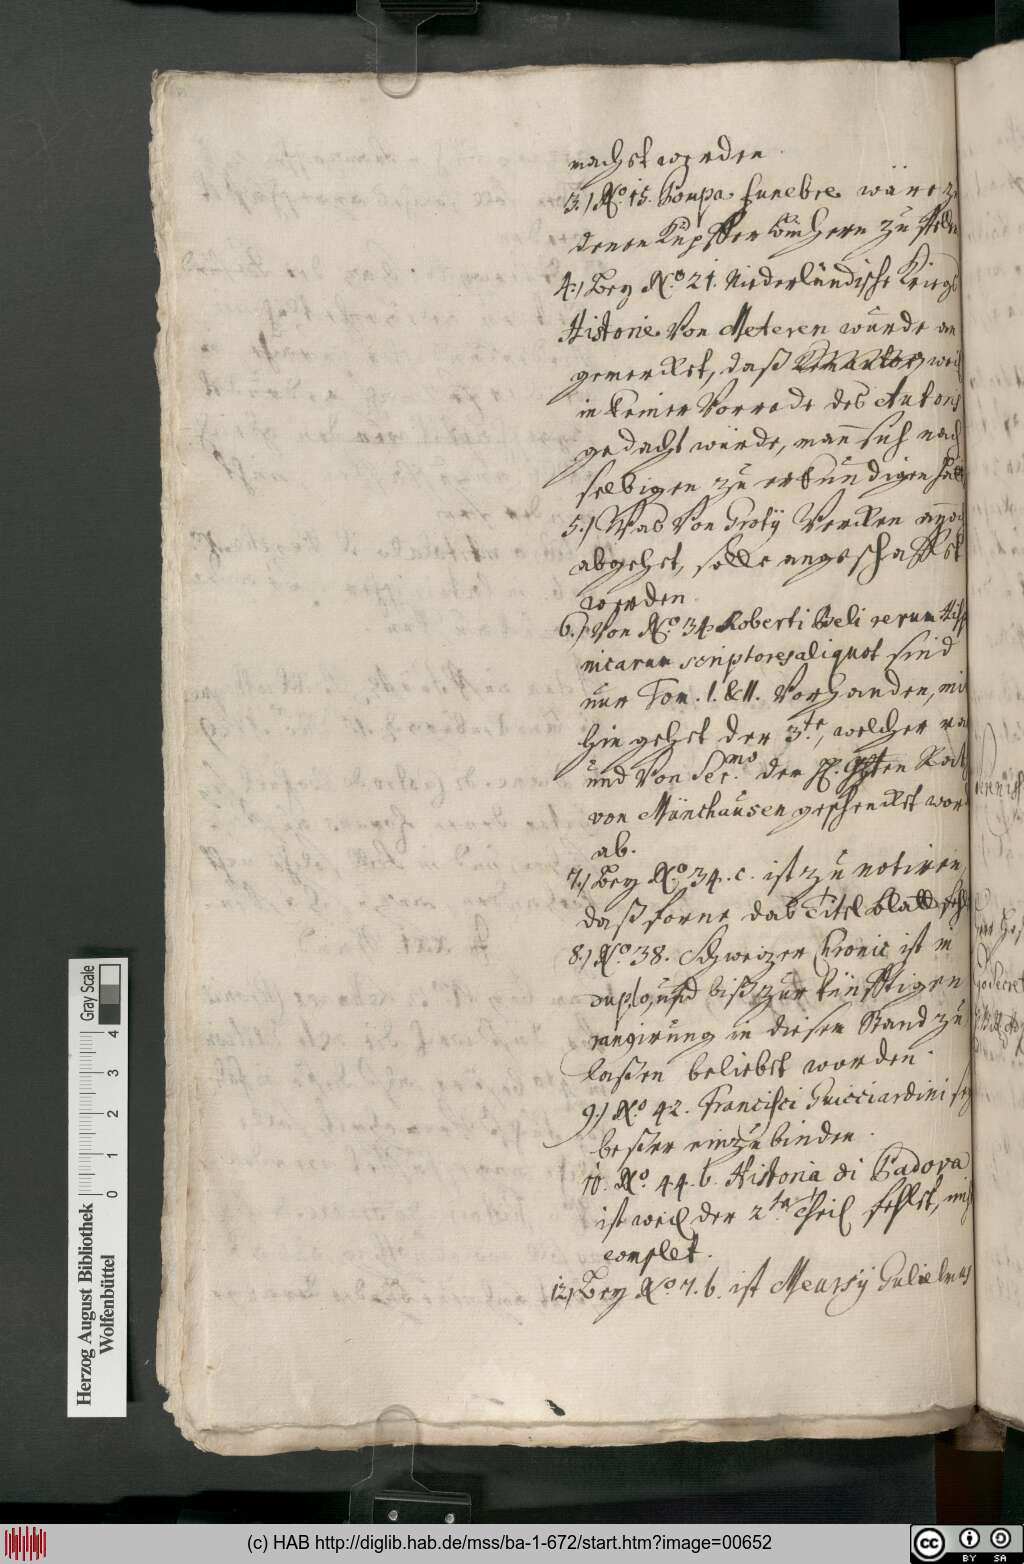 macht worden.
3.) No. 15. Pompa funebre wäre z
denen Kupffer Büchern zu stell
4.) Bey No. 21. Niederländische Kriegs
Historie Von Meteren wurde an
gemerckt, daß weil
in keiner Vorrede des Autoris
gedacht würde, man sich nach
selbigen zu erkundigen hätt
5.) Was Von Grotij Wercken annoch
abgehet, solle angeschafft
werden.
6.) Von No. 34. Roberti Beli rerum Hisp
nicarum scriptores aliquot sind
nur Tom. I. & II. Vorhanden, mit
hin gehet der 3.te, welcher rar
und Von Ser.mo der H.
von Münchausen geschenckt word
ab.
7.) Bey No. 34. c. ist zu notiren,
daß forne das Titel blatt fehl
8.) No. 38. Schweizer Chronic ist in
duplo, und biß zur künfftigen
rangirung in diesem Stand zu
laßen beliebet worden.
9.) No. 42. Francisci Guicciardini sey
beßer einzubinden.
10. No. 44. b. Historia di Padova
ist weil der 2.te Theil fehlet, nicht
complet.
12.) Bey No. 7. b. ist Meursij Gulielmus
Herzog August Bibliothek
Wolfenbüttel
0 1 2 3 4
Gray Scale
(c) HAB http://diglib.hab.de/mss/ba-1-672/start.htm?image=00652
cc BY SA